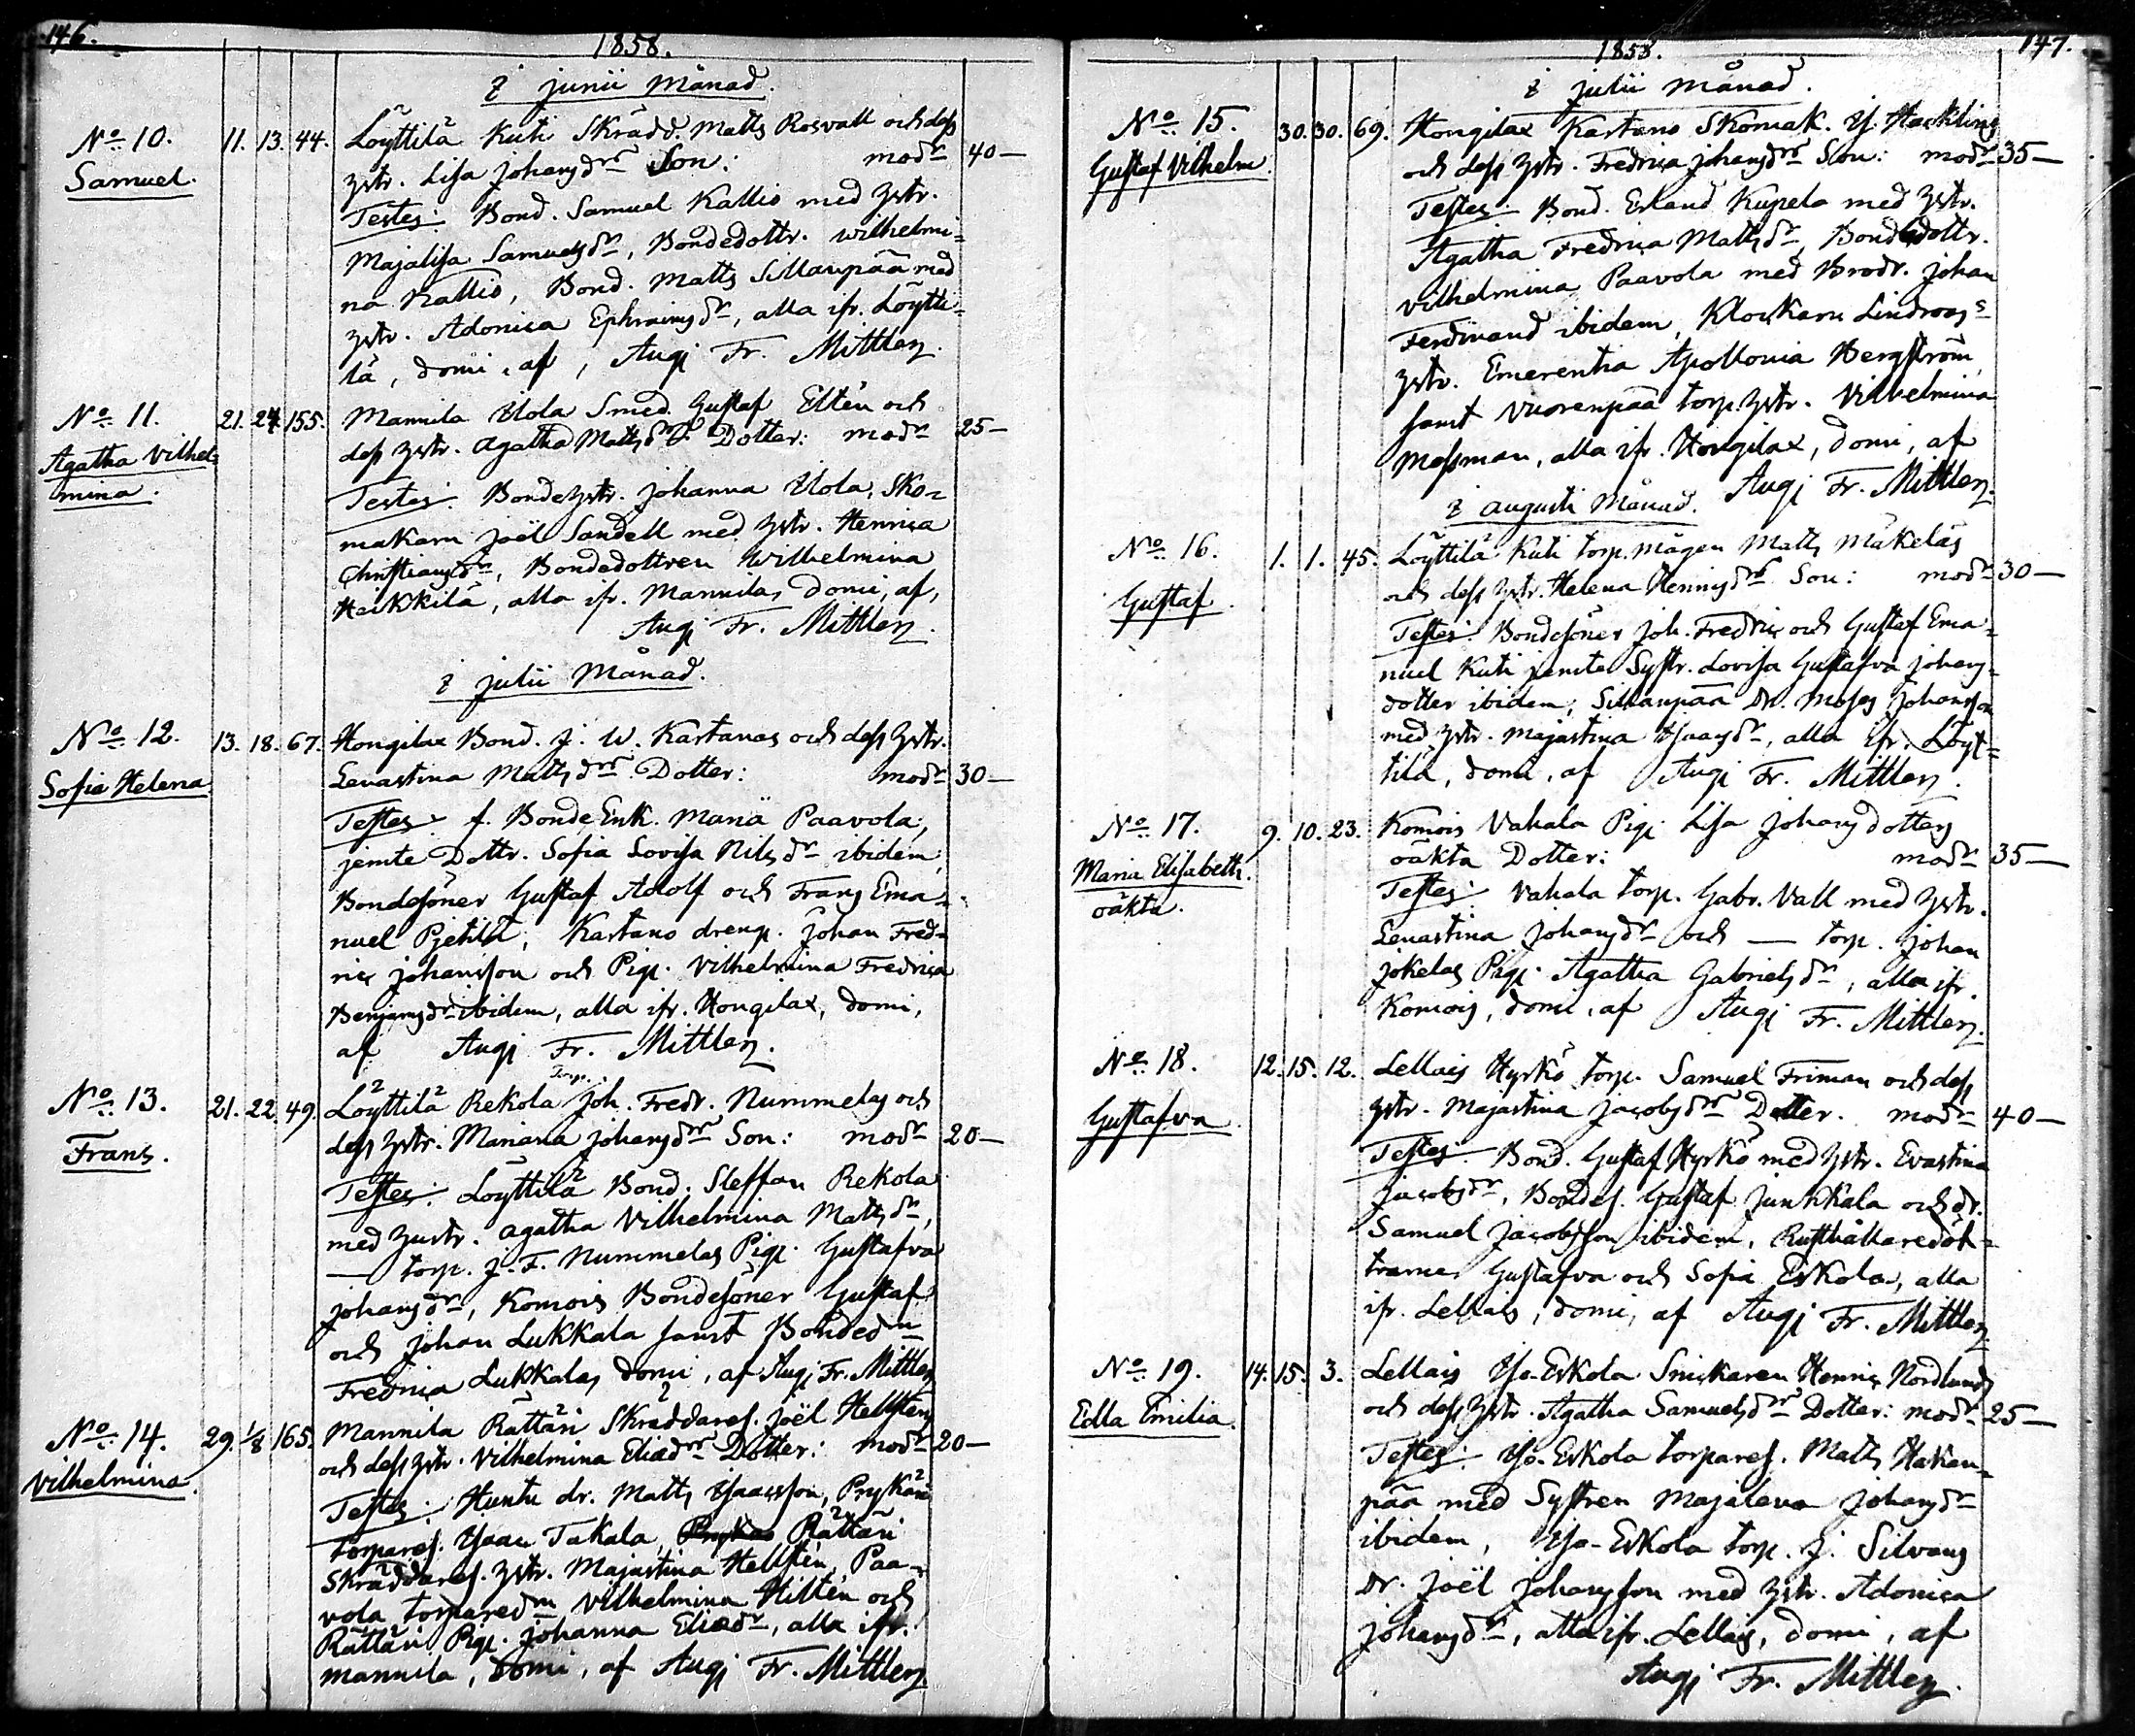 146.
1858.
i junii Månad.
No 10. 11. 13. 44. Löyttilä Kuti Skrädd. Matts Rosvall och dess
Samuel. hstr. Lisa Johansdrs Son: modr 40 —
Testes: Bond. Samuel Kallio med hstr.
Majalisa Samuelsdr, Bondedottr. Wilhelmi=
na Kallio, Bond. Matts Sillanpää med
hstr. Adonica Ephraimsdr, alla ifr. Löytti=
lä, domi, af, Augj Fr. Mittler.
No 11. 21. 24. 155. Mannila Uola Smed. Gustaf Eltén och
Agatha Vilhel= dess hstr. Agatha Mattsdrs Dotter: modr 25 —
mina. Testes: Bondehstr. Johanna Uola, Sko=
makarn Joël Sandell med hstr. Henrica
Christiansdr, Bondedottren Wilhelmina
Heikkilä, alla ifr. Mannila, domi, af,
Augj Fr. Mittler.
i julii Månad.
No 12. 13. 18. 67. Hongilax Bond. J. W. Kartanos och dess hstr.
Sofia Helena Lenastina Mattsdrs Dotter: modr 30 —
Testes: f. BondeEnk. Maria Paavola,
jemte Dottr. Sofia Lovisa Nilsdr ibidem,
Bondesöner Gustaf Adolf och Frans Ema=
nuel Pjetilä; Kartano dreng. Johan Fred=
ric Johansson och Pig. Vilhelmina Fredrica
Benjamsdr ibidem, alla ifr. Hongilax, domi,
af Augj Fr. Mittler.
No 13. 21. 22. 49. Löyttilä Rekola Torp. Joh. Fredr. Nummelas och
Frans. dess hstr. Mariana Johansdrs Son: modr 20 —
Testes: Löyttilä Bond. Steffan Rekola
med hustr. Agatha Vilhelmina Mattsdr,
— torp. J. F. Nummelas Pig. Gustafva
Johansdr, Komois Bondesöner Gustaf
och Johan Lukkala samt Bonded:n
Fredrica Lukkalas, domi, af Augj Fr. Mittler
No 14. 29. 1/8 165. Mannila Rättäri Skräddares. Joël Hellstens
Vilhelmina. och dess hstr. Vilhelmina Eliædrs Dotter: modr 20 —
Testes: Huntu dr. Matts Isaacsson, Prykäri
torpares. Isaac Takala, Rättäri
Skräddares. hstr. Majastina Hellstén, Paa=
vola torpared:n Vilhelmina Hiltén och
Rättäri Pig. Johanna Eliædr, alla ifr.
Mannila, domi, af Augj Fr. Mittler
147.
1858.
i julii Månad.
No 15. 30. 30. 69. Hongilax Kartano Skomak. Is. Hacklins
Gustaf Vilhelm. och dess hstr. Fredrica Johansdrs Son: modr 35 —
Testes: Bond. Erland Kupela med hstr.
Agatha Fredrica Mattsdr, Bondedottr.
Vilhelmina Paavola med Brodr. Johan
Ferdinand ibidem, Klockarn Lindroos's
hstr. Emerentia Apollonia Bergström,
samt Vuorenpää torp. hstr. Vilhelmina
Messman, alla ifr. Hongilax, domi, af
Augj Fr. Mittler.
i augusti Månad.
No 16. 1. 1. 45. Löyttilä Kuti torp. mågen Matts Mäkeläs
Gustaf. och dess hstr. Helena Henricsdrs Son: modr 30 —
Testes: Bondesöner Joh. Fredric och Gustaf Ema=
nuel Kuti jemte Systr. Lovisa Gustafva Johans=
dotter ibidem, Sillanpää Dr. Moses Johansson
med hstr. Majastina Isaacsdr, alla ifr. Löyt=
tilä, domi, af Augj Fr. Mittler.
No 17. 9. 10. 23. Komois Vahala Pig. Lisa Johansdotters
Maria Elisabeth. oäkta Dotter: modr 35 —
oäkta. Testes: Vahala torp. Gabr. Vall med hstr.
Lenastina Johansdr och — torp. Johan
Jokelas Pig. Agatha Gabrielsdr, alla ifr.
Komois, domi, af Augj Fr. Mittler.
No 18. 12. 15. 12. Lellais Hyrkö torp. Samuel Friman och dess
Gustafva. hstr. Majastina Jacobsdrs Dotter. modr 40 —
Testes: Bond. Gustaf Hyrkö med hstr. Evastina
Jacobsdr, Bondes. Gustaf Junkkala och dr.
Samuel Jacobsson ibidem, Rusthållaredöt=
trarne Gustafva och Sofia Eskola, alla
ifr. Lellais, domi, af Augj Fr. Mittler
No 19. 14. 15. 3. Lellais Iso-Eskola Snickaren Henric Nordlunds
Edla Emilia. och dess hstr. Agatha Samuelsdrs Dotter: modr 25 —
Testes: Iso-Eskola torpares. Matts Hakan=
pää med Systren Majalena Johansdr
ibidem, Iso-Eskola torp. J. Silvans
Dr. Joël Johansson med hstr. Adonica
Johansdr, alla ifr. Lellais, domi, af
Augj Fr. Mittler.